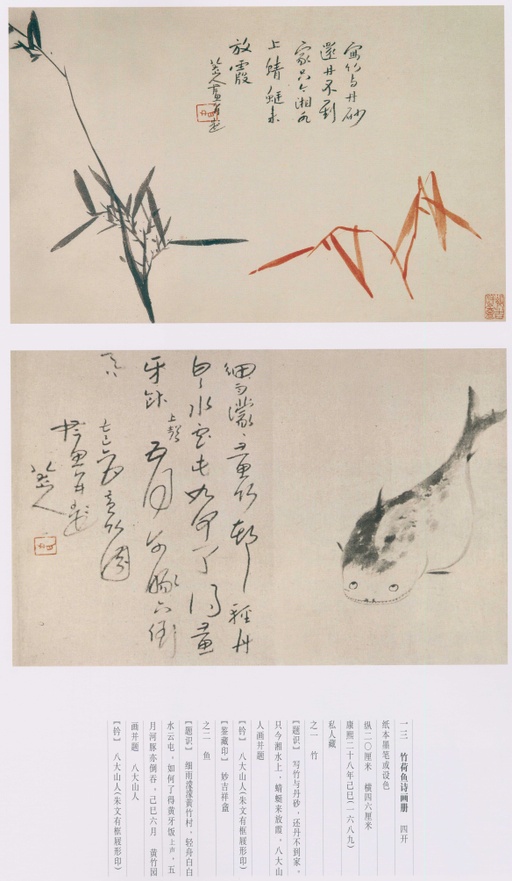 写竹与丹砂
还丹不到
家只今湘水
上蜻蜓来
放霞
八大山人画并题
细雨濛濛黄竹村轻舟
白白水云屯如何了得黄
牙饭上声五月河豚亦倒
吞
己巳六月黄竹园
画并题
八大山人
一三 竹荷鱼诗画册 四开
纸本墨笔或设色
纵二〇厘米 横四六厘米
康熙二十八年己巳(一六八九)
私人藏
之一 竹
【题识】 写竹与丹砂,还丹不到家,
只今湘水上,蜻蜓来放霞。八大山
人画并题
【钤】 八大山人(朱文有框屐形印)
【鉴藏印】 妙吉祥盦
之二 鱼
【题识】 细雨濛濛黄竹村,轻舟白白
水云屯。如何了得黄牙饭上声,五
月河豚亦倒吞。己巳六月 黄竹园
画并题 八大山人
【钤】 八大山人(朱文有框屐形印)